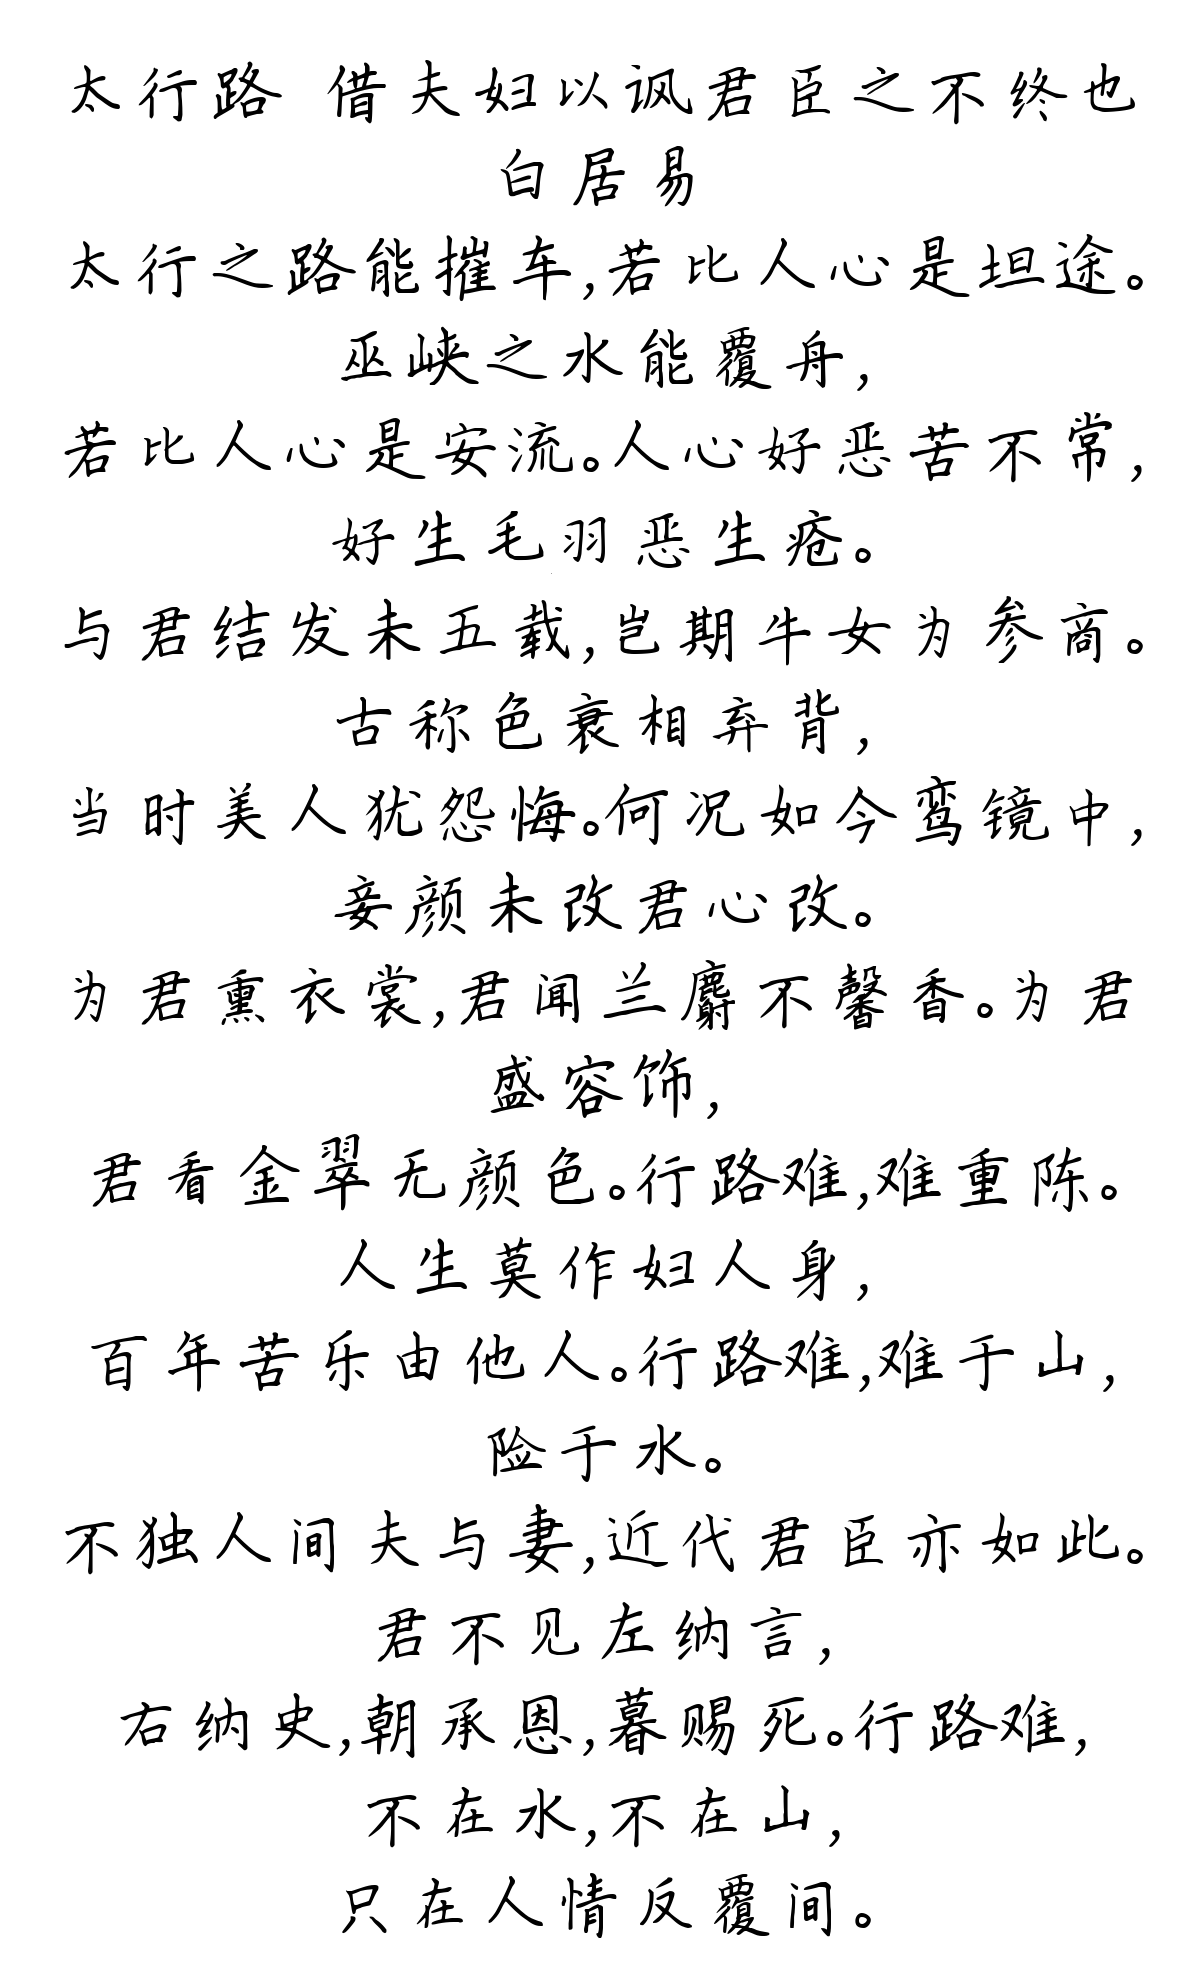 太行路 借夫妇以讽君臣之不终也
白居易
太行之路能摧车,若比人心是坦途。
巫峡之水能覆舟,
若比人心是安流。人心好恶苦不常,
好生毛羽恶生疮。
与君结发未五载,岂期牛女为参商。
古称色衰相弃背,
当时美人犹怨悔。何况如今鸾镜中,
妾颜未改君心改。
为君熏衣裳,君闻兰麝不馨香。为君
盛容饰,
君看金翠无颜色。行路难,难重陈。
人生莫作妇人身,
百年苦乐由他人。行路难,难于山,
险于水。
不独人间夫与妻,近代君臣亦如此。
君不见左纳言,
右纳史,朝承恩,暮赐死。行路难,
不在水,不在山,
只在人情反覆间。